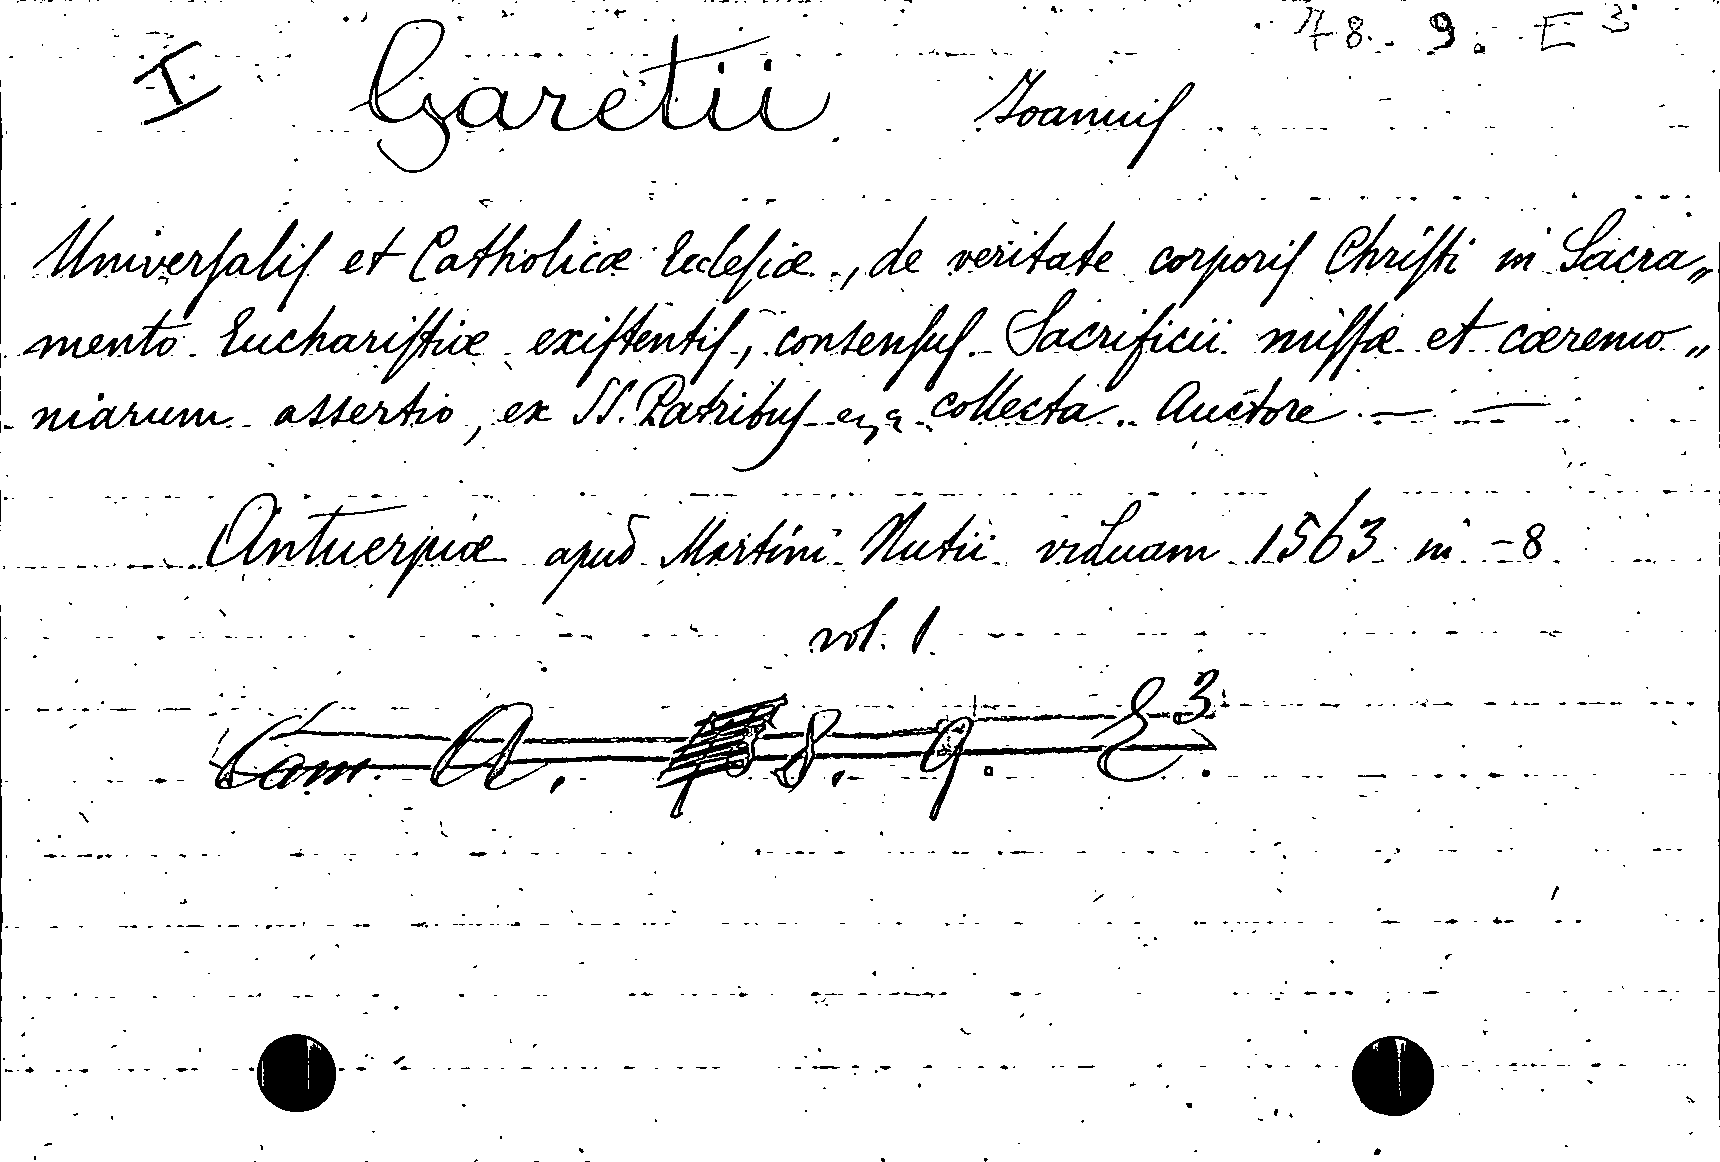 I Garetii Joannis 78. 9. E 3
Universalis et Catholicæ Ecclesiæ, de veritate corporis Christi in Sacra„
mento Eucharistiæ existentis, consensus. Sacrificii missæ et cæremo„
niarum assertio, ex SS. Patribus collecta. Auctore — —
Antuerpiæ apud Martini Nutii viduam 1563 in -8
vol. 1.
Cam. A. 8. 9. E3.